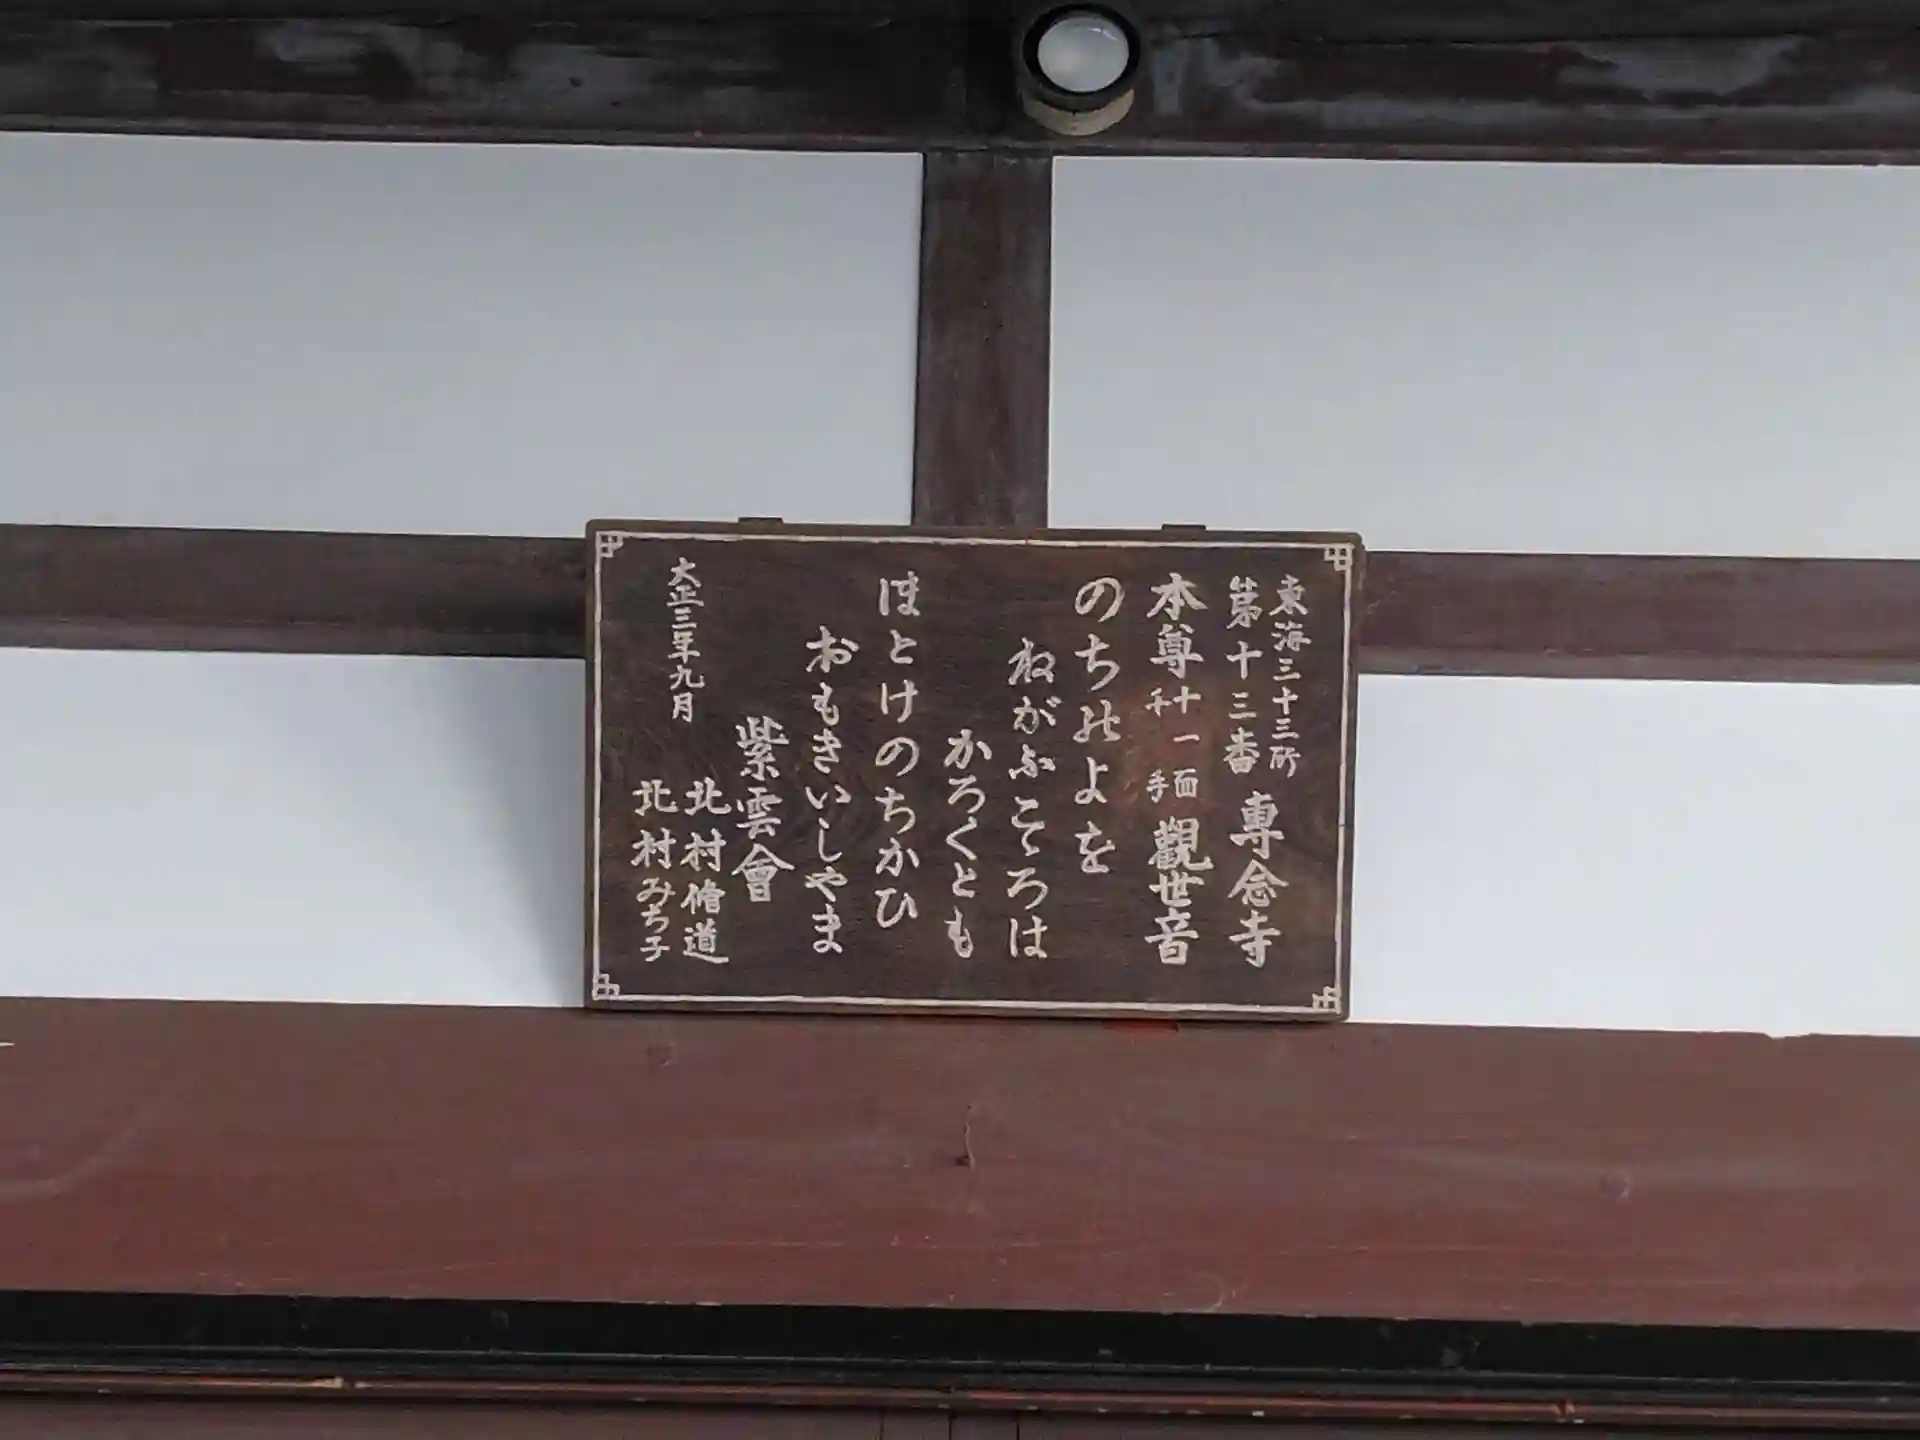 東海三十三所
第十三番 專念寺
本尊 十一面千手 觀世音
のちのよを
ねがふこゝろは
かろくとも
ほとけのちかひ
おもきいしやま
紫雲會
大正三年九月
北村脩道
北村みち子